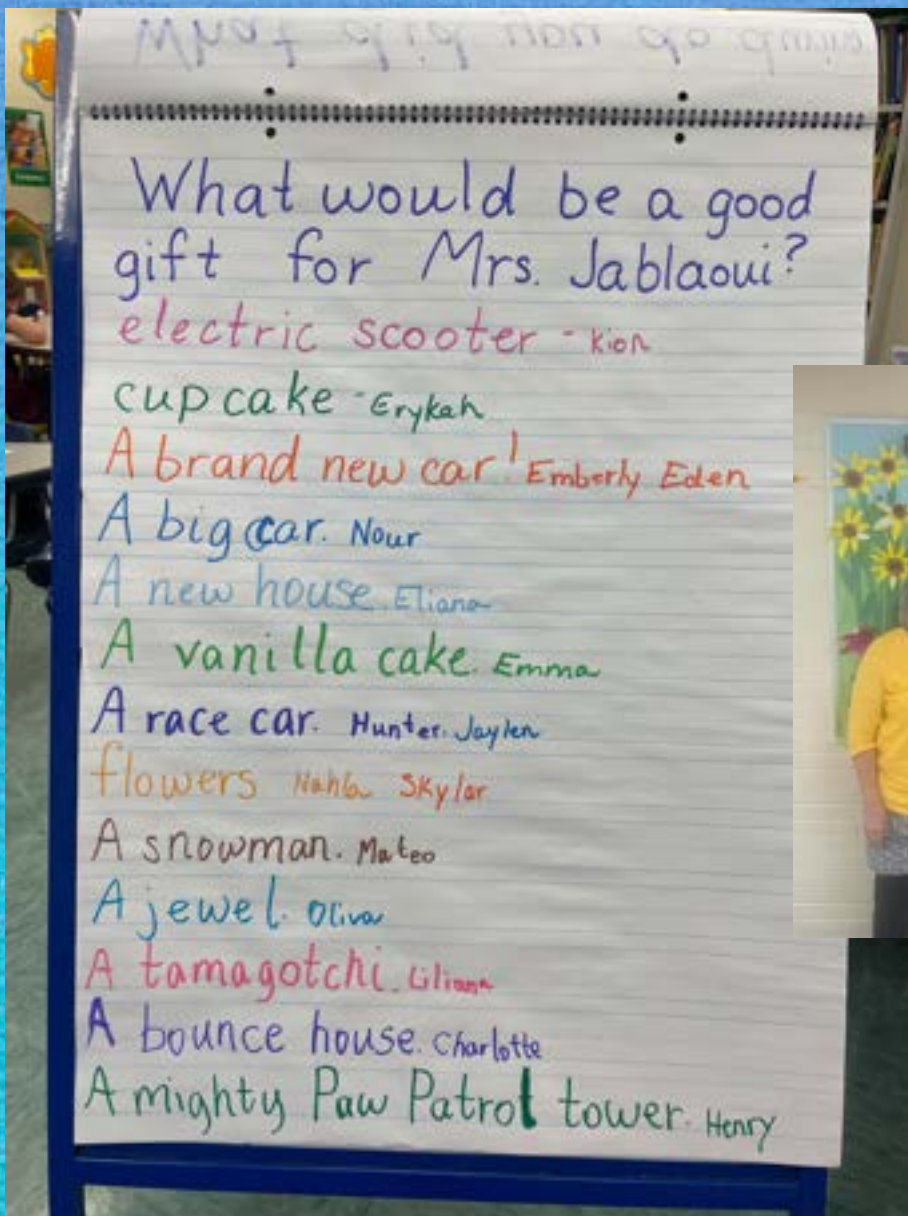 What did you do during
What would be a good
gift for Mrs. Jablaoui?
electric scooter - Kion
cupcake - Erykah
A brand new car! Emberly Eden
A big car. Nour
A new house. Eliana
A vanilla cake. Emma
A race car. Hunter. Jaylen
flowers Nahla Skylar
A snowman. Mateo
A jewel. Oliva
A tamagotchi. Liliana
A bounce house. Charlotte
A mighty Paw Patrol tower. Henry